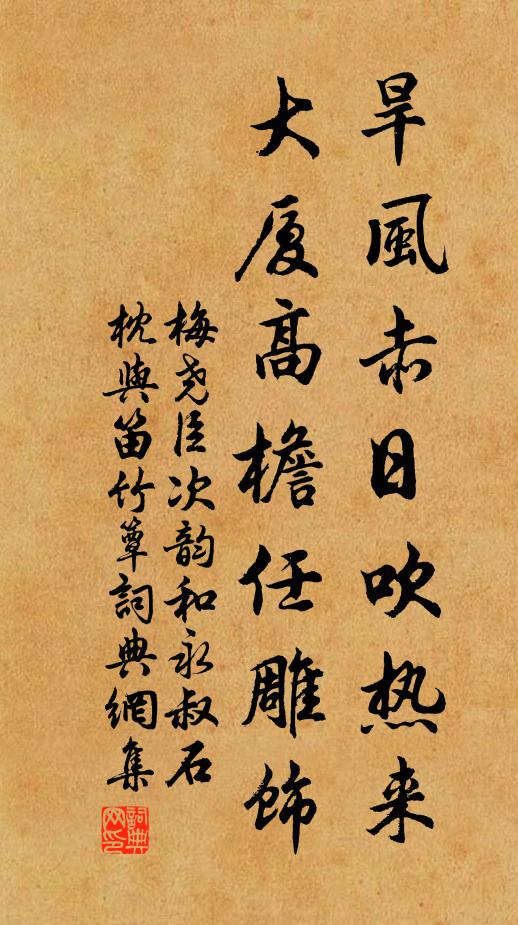 旱風赤日吹热来
大厦高檐任雕飾
梅尧臣次韵和永叔石
枕與笛竹簟詞典網集
詞典
网印